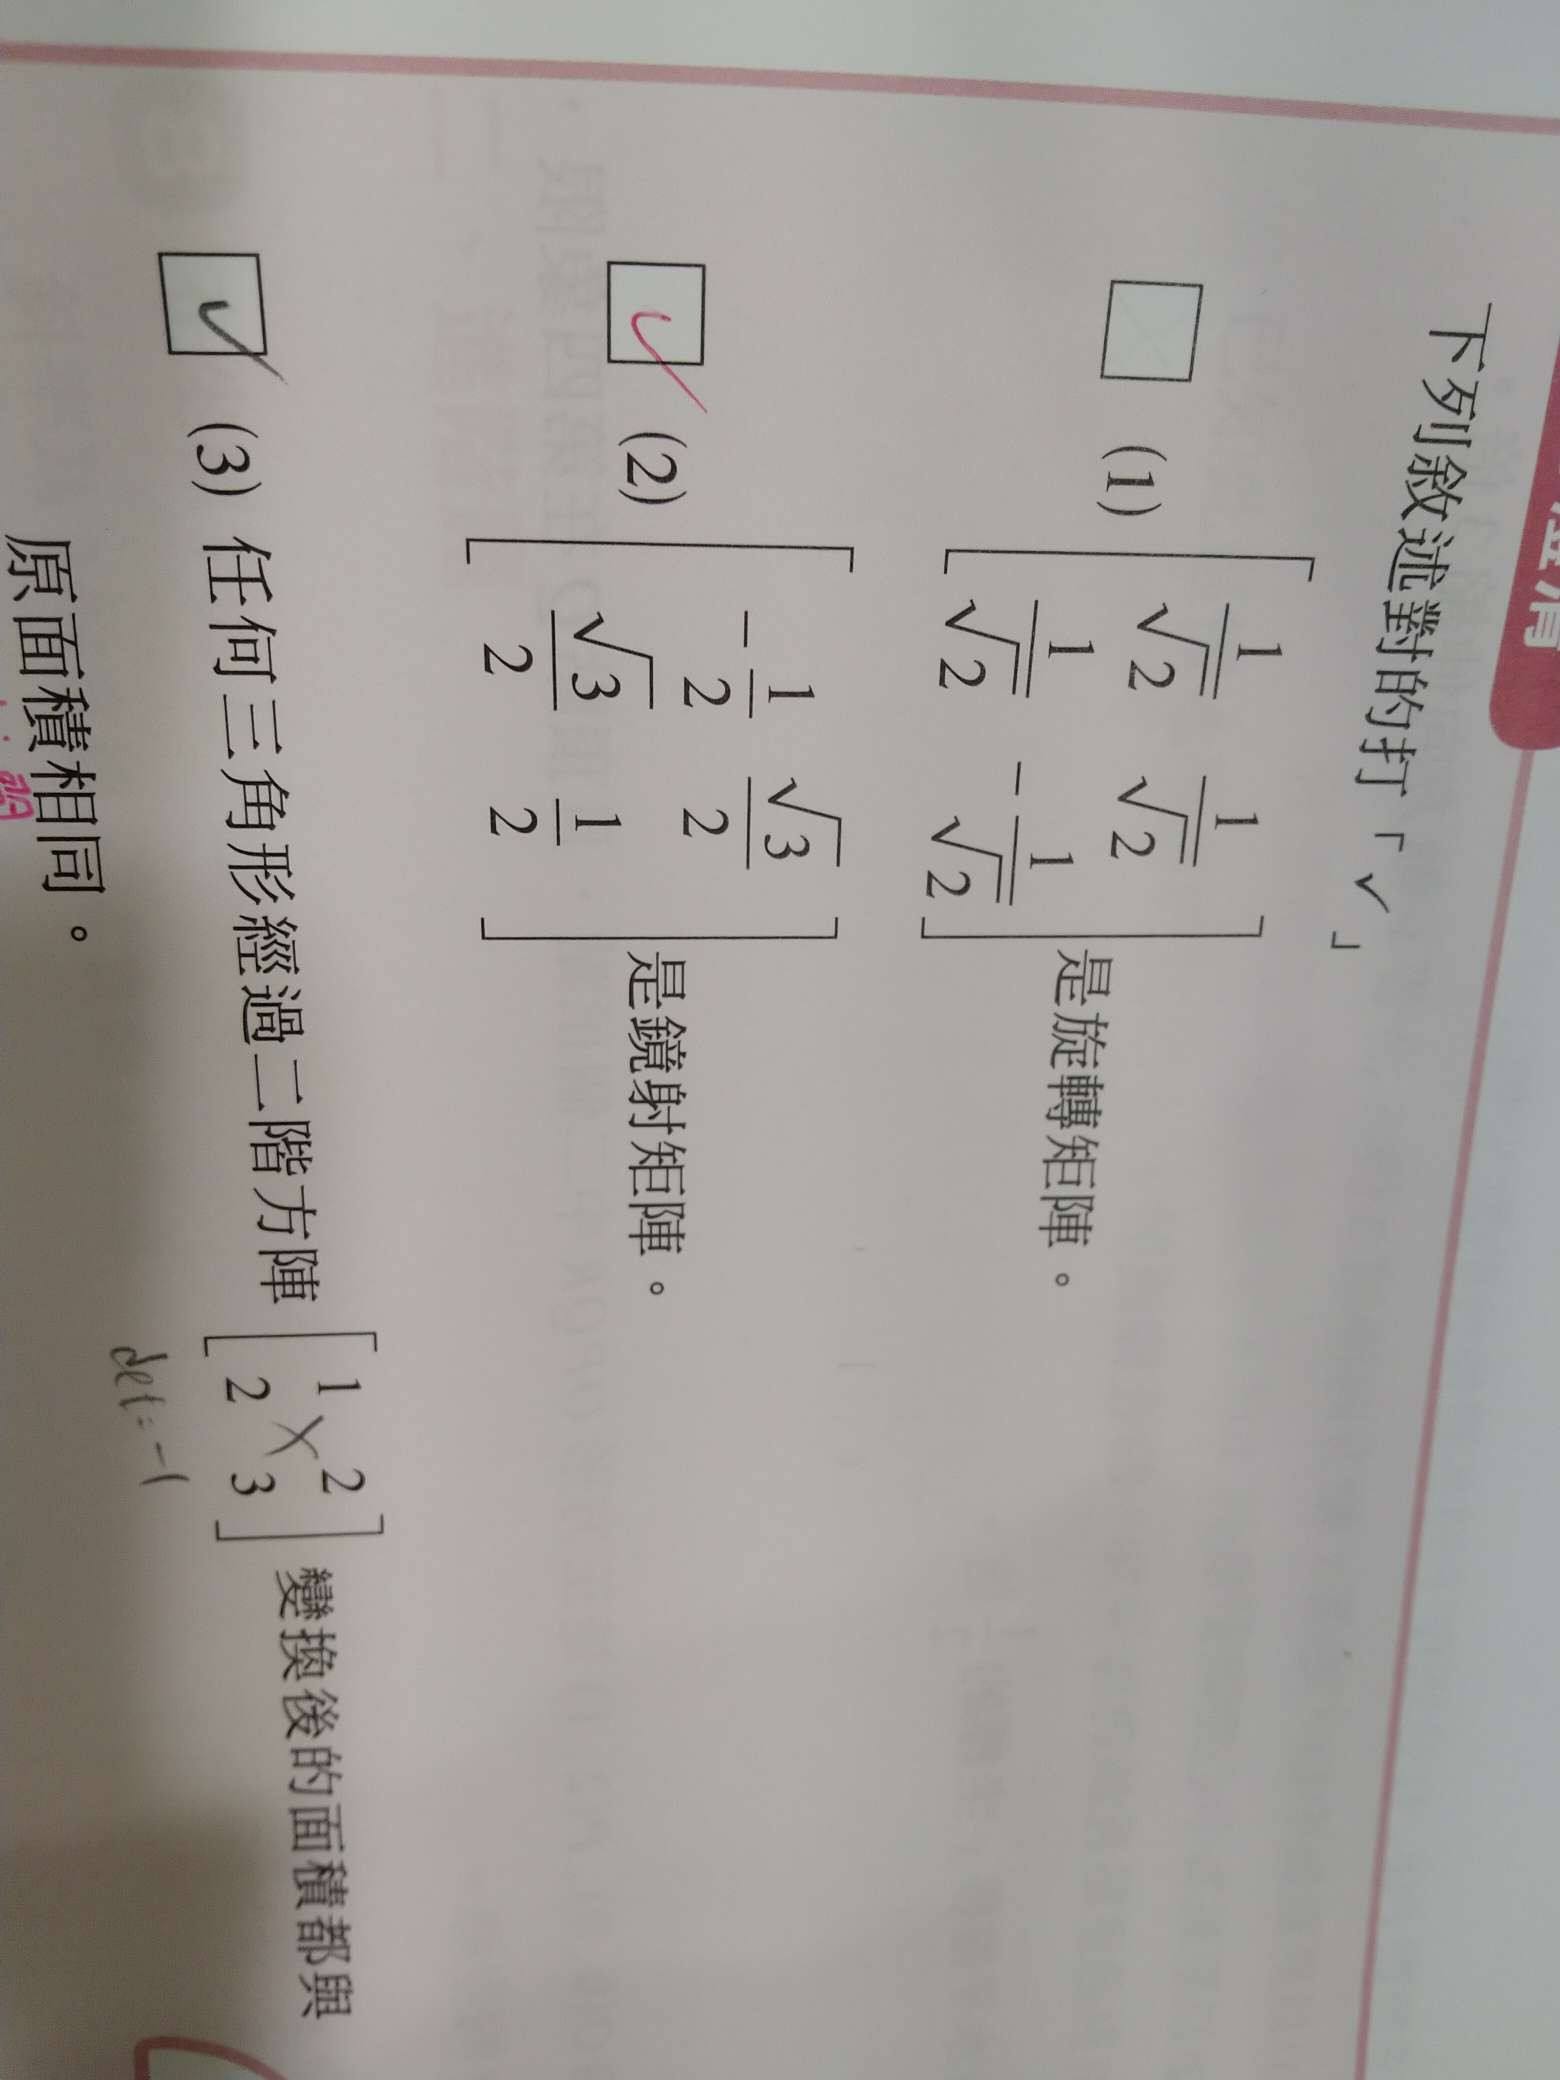 下列敘述對的打「✓」
(1) [ 1/√2 1/√2 ; 1/√2 -1/√2 ] 是旋轉矩陣。
✓ (2) [ -1/2 √3/2 ; √3/2 1/2 ] 是鏡射矩陣。
✓ (3) 任何三角形經過二階方陣 [ 1 2 ; 2 3 ] 變換後的面積都與
det=-1
原面積相同。